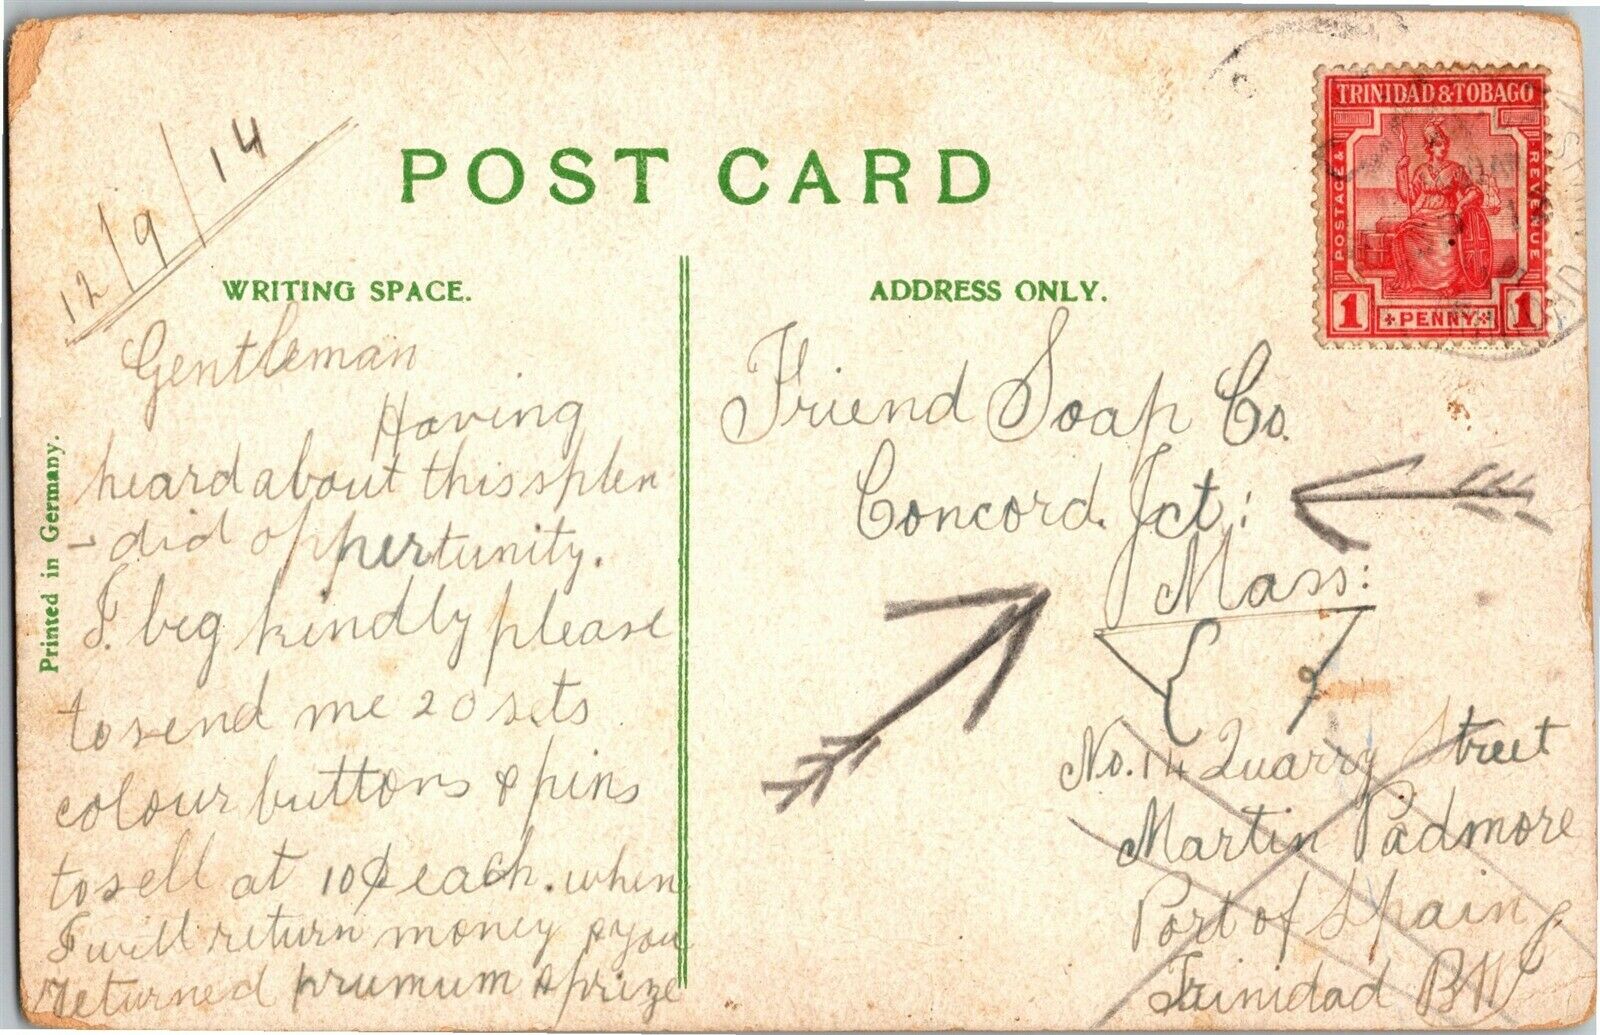 POST CARD
TRINIDAD & TOBAGO
POSTAGE &
REVENUE
1 PENNY 1
12/9/14
WRITING SPACE.
Gentleman
Having
heard about this splen
-did oppertunity.
I. beg kindly please
to send me 20 sets
colour buttons & pins
to sell at 10¢ each. when
I will return money & you
returned prumum & prize
Printed in Germany.
ADDRESS ONLY.
Friend Soap Co.
Concord. Jct:
Mass:
No. 14 Quarry Street
Martin Padmore
Port of Spain
Trinidad BW